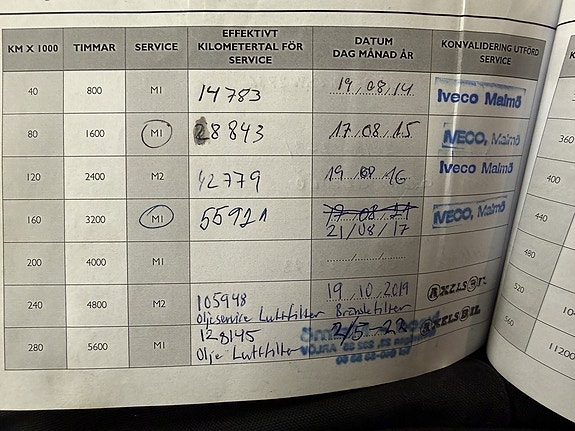 KM X 1000 TIMMAR SERVICE EFFEKTIVT KILOMETERTAL FÖR SERVICE DATUM DAG MÅNAD ÅR KONVALIDERING UTFÖRD SERVICE
40 800 M1 14783 19/08/14 Iveco Malmö
80 1600 M1 28843 17/08/15 IVECO, Malmö
120 2400 M2 42779 19 08 16 Iveco Malmö
160 3200 M1 55921 21/08/17 IVECO, Malmö
200 4000 M1
240 4800 M2 105948 19/10/2019 AXELS BIL
Oljeservice Luftfilter Bränslefilter
280 5600 M1 128145 2/5-22 AXELS BIL
Olje Luftfilter
360
400
440
480
520
560